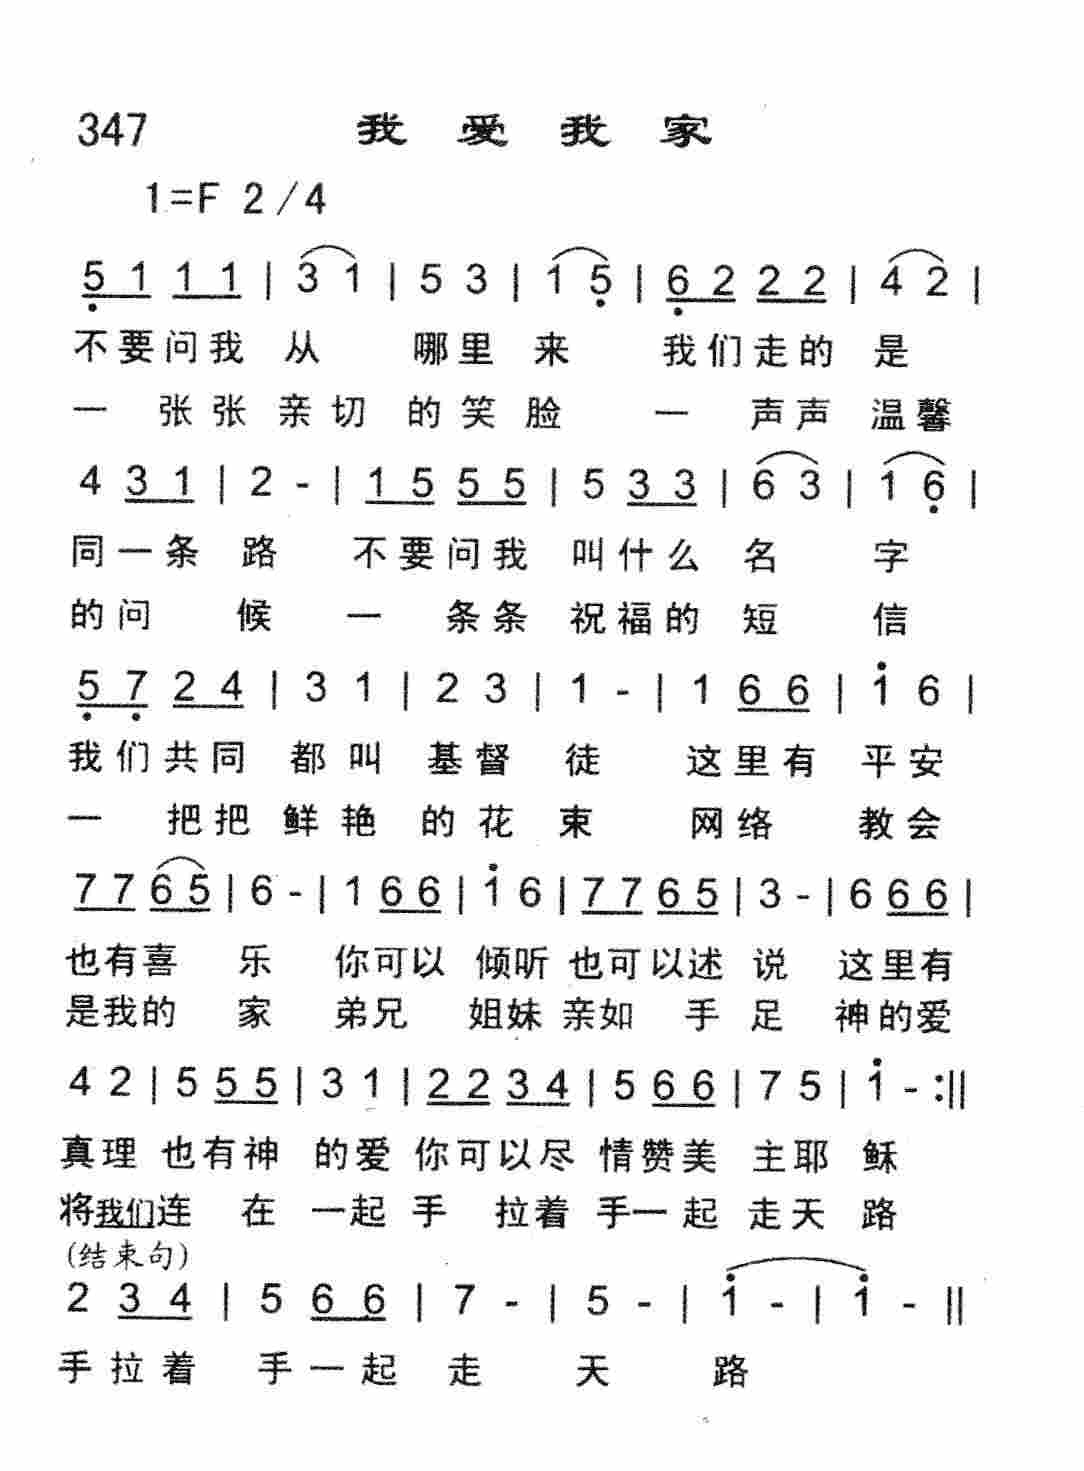 347 我爱我家
1=F 2/4
5 1 1 1 | 3 1 | 5 3 | 1 5 | 6 2 2 2 | 4 2 |
不要问我 从 哪里 来 我们走的 是
一 张张 亲切 的笑 脸 一 声声 温馨
4 3 1 | 2 - | 1 5 5 5 | 5 3 3 | 6 3 | 1 6 |
同一条 路 不要问我 叫什么 名 字
的问 候 一 条条 祝福的 短 信
5 7 2 4 | 3 1 | 2 3 | 1 - | 1 6 6 | 1 6 |
我们共同 都叫 基督 徒 这里有 平安
一 把把 鲜艳 的花 束 网络 教会
7 7 6 5 | 6 - | 1 6 6 | 1 6 | 7 7 6 5 | 3 - | 6 6 6 |
也有喜 乐 你可以 倾听 也可以述 说 这里有
是我的 家 弟兄 姐妹 亲如 手 足 神的爱
4 2 | 5 5 5 | 3 1 | 2 2 3 4 | 5 6 6 | 7 5 | 1 - :||
真理 也有神 的爱 你可以尽 情赞美 主耶 稣
将我们连 在 一起 手 拉着 手一起 走天 路
(结束句)
2 3 4 | 5 6 6 | 7 - | 5 - | 1 - | 1 - ||
手拉着 手一起 走 天 路